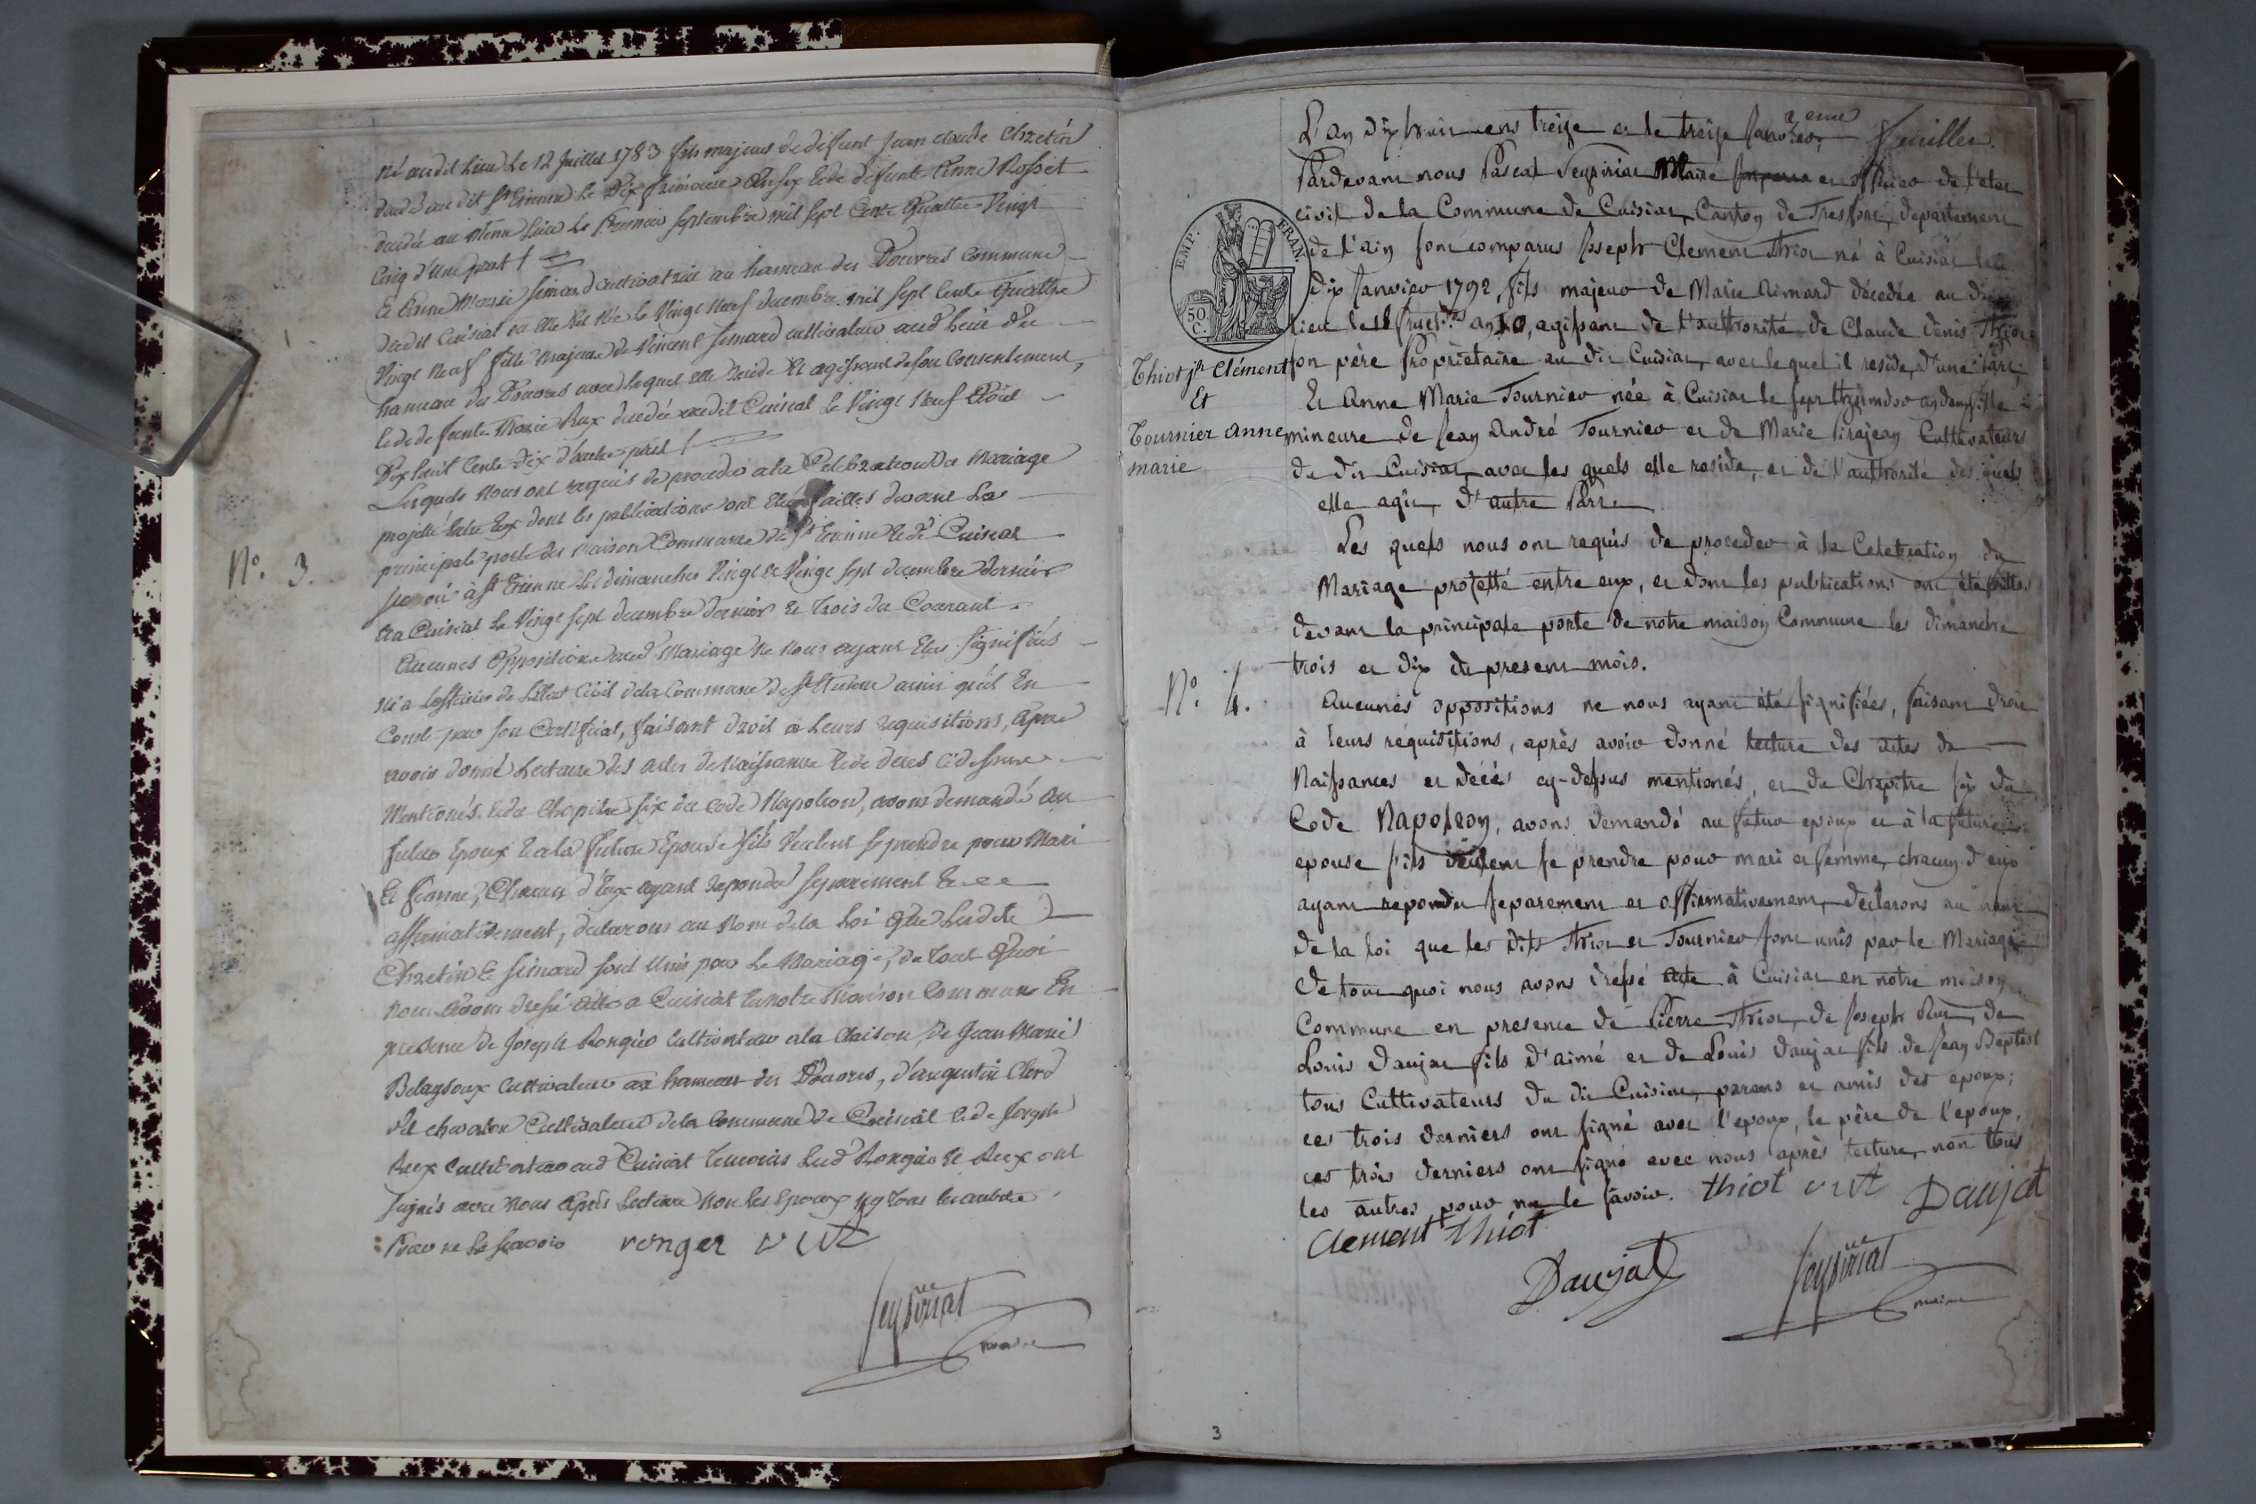 né audit Lieu Le 12 Juillet 1783 fils majeur de deffunt Jean claude Chretin
decedé au dit St Etienne le Dix frimaire an six Et de defunte Anne Rosset
decedée au même Lieu Le Premier Septembre mil sept Cent Quattre Vingt
Cinq d'Une part /
Et Anne Marie Simard Cultivatrice au hameau des Douvres Commune
dudit Cuisiat ou elle Est Née le Vingt Neuf decembre mil sept Cent Quattre
Vingt Neuf fille Majeure de Vincent Simard cultivateur aud Lieu du
hameau des Douvres avec lequel elle Reside Et agissant de son Consentement,
Et de defunte Marie Rux decedée audit Cuisiat Le Vingt Neuf Août
Dix huit Cents Dix d'autre part /
Lesquels Nous ont requis de proceder a la Celebration du Mariage
projetté Entre Eux dont les publications ont Etés faittes devant La
principale porte des Maison Commune de St Etienne Et de Cuisiat
à St Etienne Les dimanches Vingt Et Vingt Sept decembre dernier
Et a Cuisiat Le Vingt sept decembre dernier Et trois du Courant.
Aucunes Opposition aud Mariage Ne Nous ayant Etés Signifiés
Ni a L'officier de L'Etat Civil de la Commune de St Etienne ainsi qu'il En
Conste par son Certificat, faisant droit a Leurs requisitions, Après
avoir donné Lecture des actes de Naissance Et de deces Ci dessus
Mentionés. Et du Chapitre Six du Code Napoleon, avons demandé au
futur Epoux Et a la future Epouse s'ils Veulent se prendre pour Mari
Et femme, Chacun d'Eux ayant repondu separement Et
affirmativement, declarons au Nom de la Loi que Lesdits
Chretin & Simard sont Unis par Le Mariage, de tout Quoi
Nous avons dressé acte a Cuisiat En notre Maison Commune En
presence de Joseph Rongier Cultivateur a la Claison, De Jean Marie
cultivateur au hameau des Douvres, d'augustin Clerd
dit chevalon Cultivateur de la Commune de Cuisiat Et de Joseph
Rux Cultivateur aud Cuisiat Temoins Led Rongier Et Rux ont
Signés avec Nous Après Lecture Non les Epoux Ny tous les autres
Pour ne Le Scavoir ronger rut
Seysiriat
maire
N°. 3.
2eme
feuillet.
L'an dix huit cens treize et le treize Janvier,
Pardevant nous Pascal Seysiriat Maire et officier de l'etat
civil de la Commune de Cuisiat, Canton de Treffort, departement
de l'ain sont comparus Joseph Clement Thiot né à Cuisiat le
dix Janvier 1792, fils majeur de Marie Aimard décedée au dit
lieu le fruct. an 10, agissant de l'authorité de Claude Denis Thiot
son père Proprietaire au dit Cuisiat, avec lequel il reside, d'une Part;
Et Anne Marie Tournier née à Cuisiat le sept fille
mineure de Jean André Tournier et de Marie Pirajean Cultivateurs
du dit Cuisiat avec les quels elle reside, et de l'authorité des quels
elle agit, d'autre Part
Les quels nous ont requis de proceder à la Celebration du
Mariage projetté entre eux, et dont les publications ont été faittes
devant la principale porte de notre maison Commune les dimanche
trois et dix du present mois.
Aucunes oppositions ne nous ayant été signifiées, faisant droit
à leurs réquisitions, après avoir donné lecture des actes de
Naissances et décés cy-dessus mentionés, et du Chapitre six du
Code Napoleon, avons demandé au futur epoux et à la future
epouse s'ils veulent se prendre pour mari et femme, chacun d'eux
ayant repondu separement et affirmativement, declarons au nom
de la loi que les dits Thiot et Tournier sont unis par le Mariage
de tout quoi nous avons dressé acte à Cuisiat en notre maison
Commune en presence de Pierre Thiot, de Joseph Rut, de
Louis Daujat fils d'aimé et de Louis Daujat fils de Jean Baptist
tous Cultivateurs du dit Cuisiat, parens et amis des epoux;
ces trois derniers ont signé avec l'epoux, le père de l'epoux,
ces trois derniers ont signé avec nous après lecture, non tous
les autres pour ne le savoir. thiot rut Daujat
Clement thiot
Daujat
Seysiriat
maire
EMP. FRAN.
50. C.
Thiot jh Clément
Et
Tournier Anne
marie
N°. 4.
3